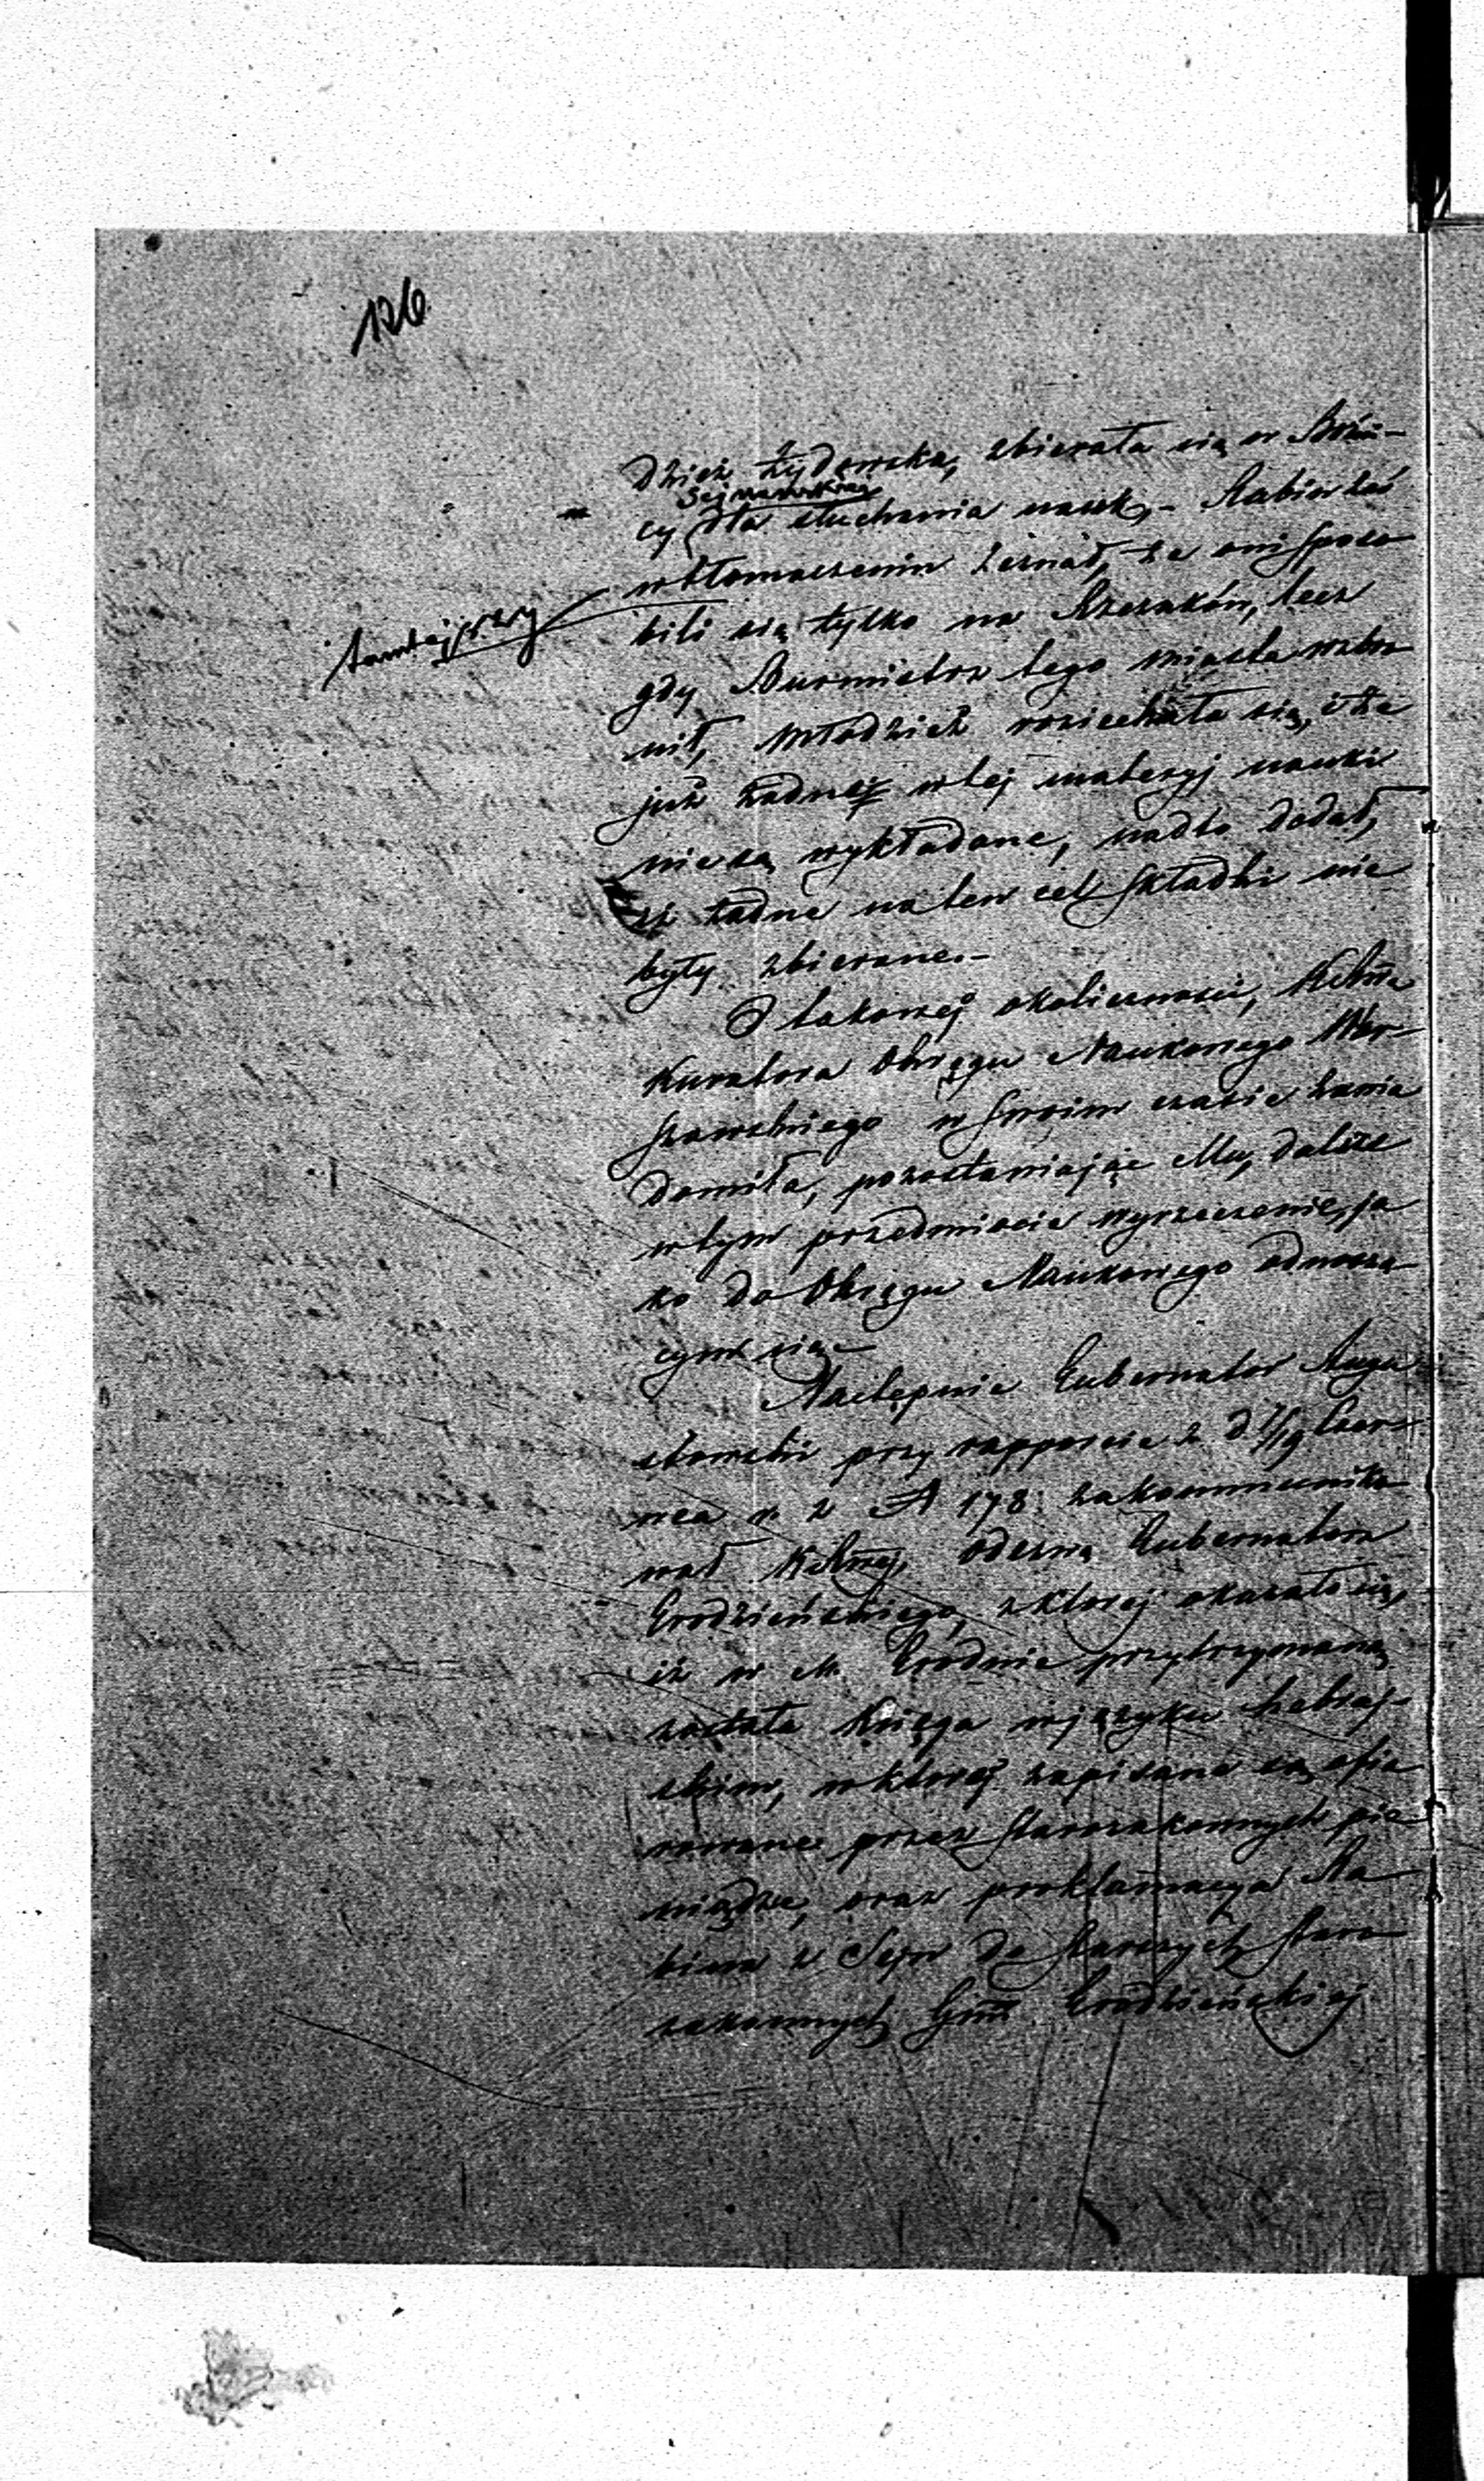 126
dzież żydowska, zbierała się w Bóżni-
Sejneńskiej
cy dla słuchania nauk, - Rabin zaś
tamtejszy
w tłomaczeniu zeznał, że oni sposo
bili się tylko na Szkraków, lecz
gdy Burmistrz tego miasta wzbro
nił, młodzież rozjechała się, i że
już żadne w tej materyj nauki
nie są wykładane, nadto dodał,
iż żadne na ten cel składki nie
były zbierane.-
O takowej okoliczności,
Kuratora Okręgu Naukowego War-
szawskiego w swoim czasie zawia
domiła, pozostawiając Mu, dalsze
w tym przedmiocie wyrzeczenie, ja
ko do Okręgu Naukowego odnoszą-
cym się.-
Następnie Gubernator Augu
stowski przy rapporcie z d 7/19 Czer-
wca r. z № 178. zakommuniko
wał odezwę Gubernatora
Grodzieńskiego, z której okazało się,
iż w m. Grodnie przytrzymaną
została księga w języku hebraj-
skim, w której zapisane są ofia
rowane przez starozakonnych pie
niądze, oraz proklamacya Ra
bina z Sejn do starszych staro
zakonnych Gminy Grodzieńskiej